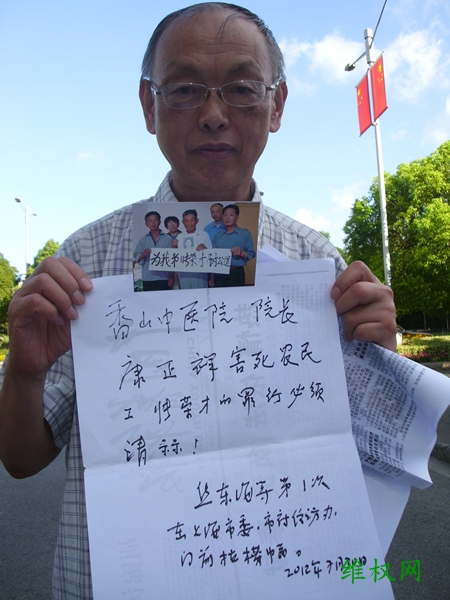 为我弟 荣才讨公道
香山中医院 院长
康正 害死农民
工 荣才的罪行必须
清祘！
东海等第1次
在上海市委、市
门前拉横幅。
2012年7月 日
维权网